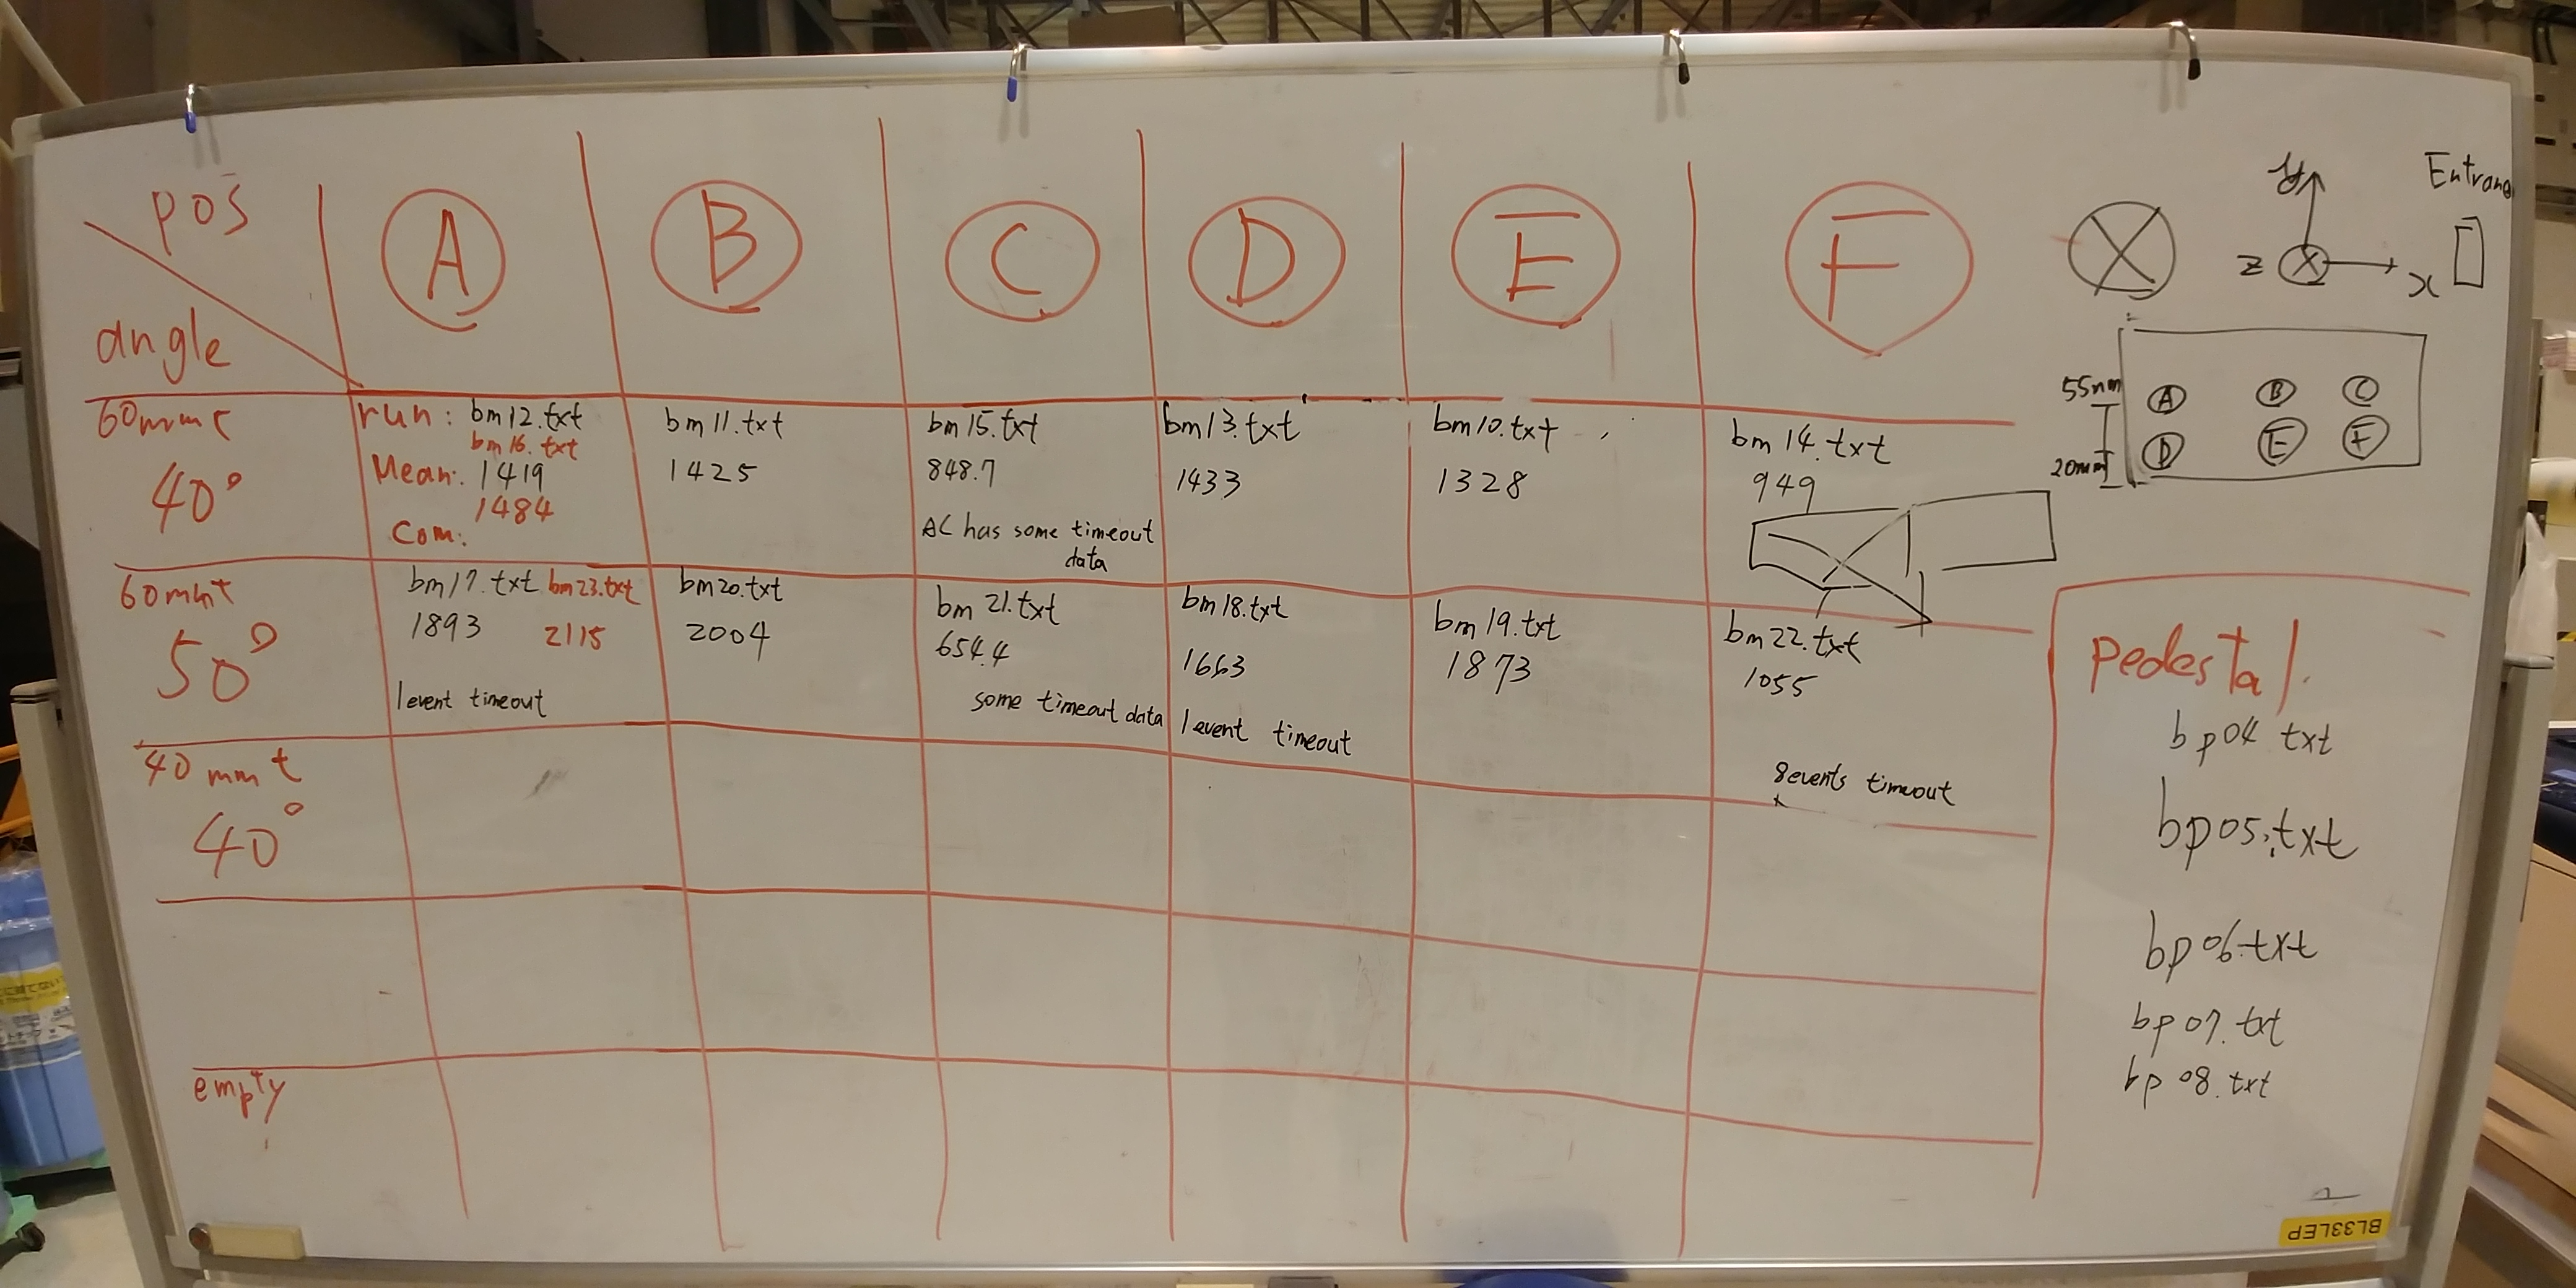 pos
angle
A
B
C
D
E
F
60mmt
40°
run: bm12.txt
bm16.txt
Mean: 1419
1484
Com:
bm11.txt
1425
bm15.txt
848.7
AC has some timeout
data
bm13.txt
1433
bm10.txt
1328
bm14.txt
949
60mmt
50°
bm17.txt bm23.txt
1893 2115
1event timeout
bm20.txt
2004
bm21.txt
654.4
some timeout data
bm18.txt
1663
1event timeout
bm19.txt
1873
bm22.txt
1055
8events timeout
40mmt
40°
empty
y
z x
Entrance
55mm
20mm
A B C
D E F
pedestal
bp04 txt
bp05.txt
bp06.txt
bp07.txt
bp08.txt
BL33LEP